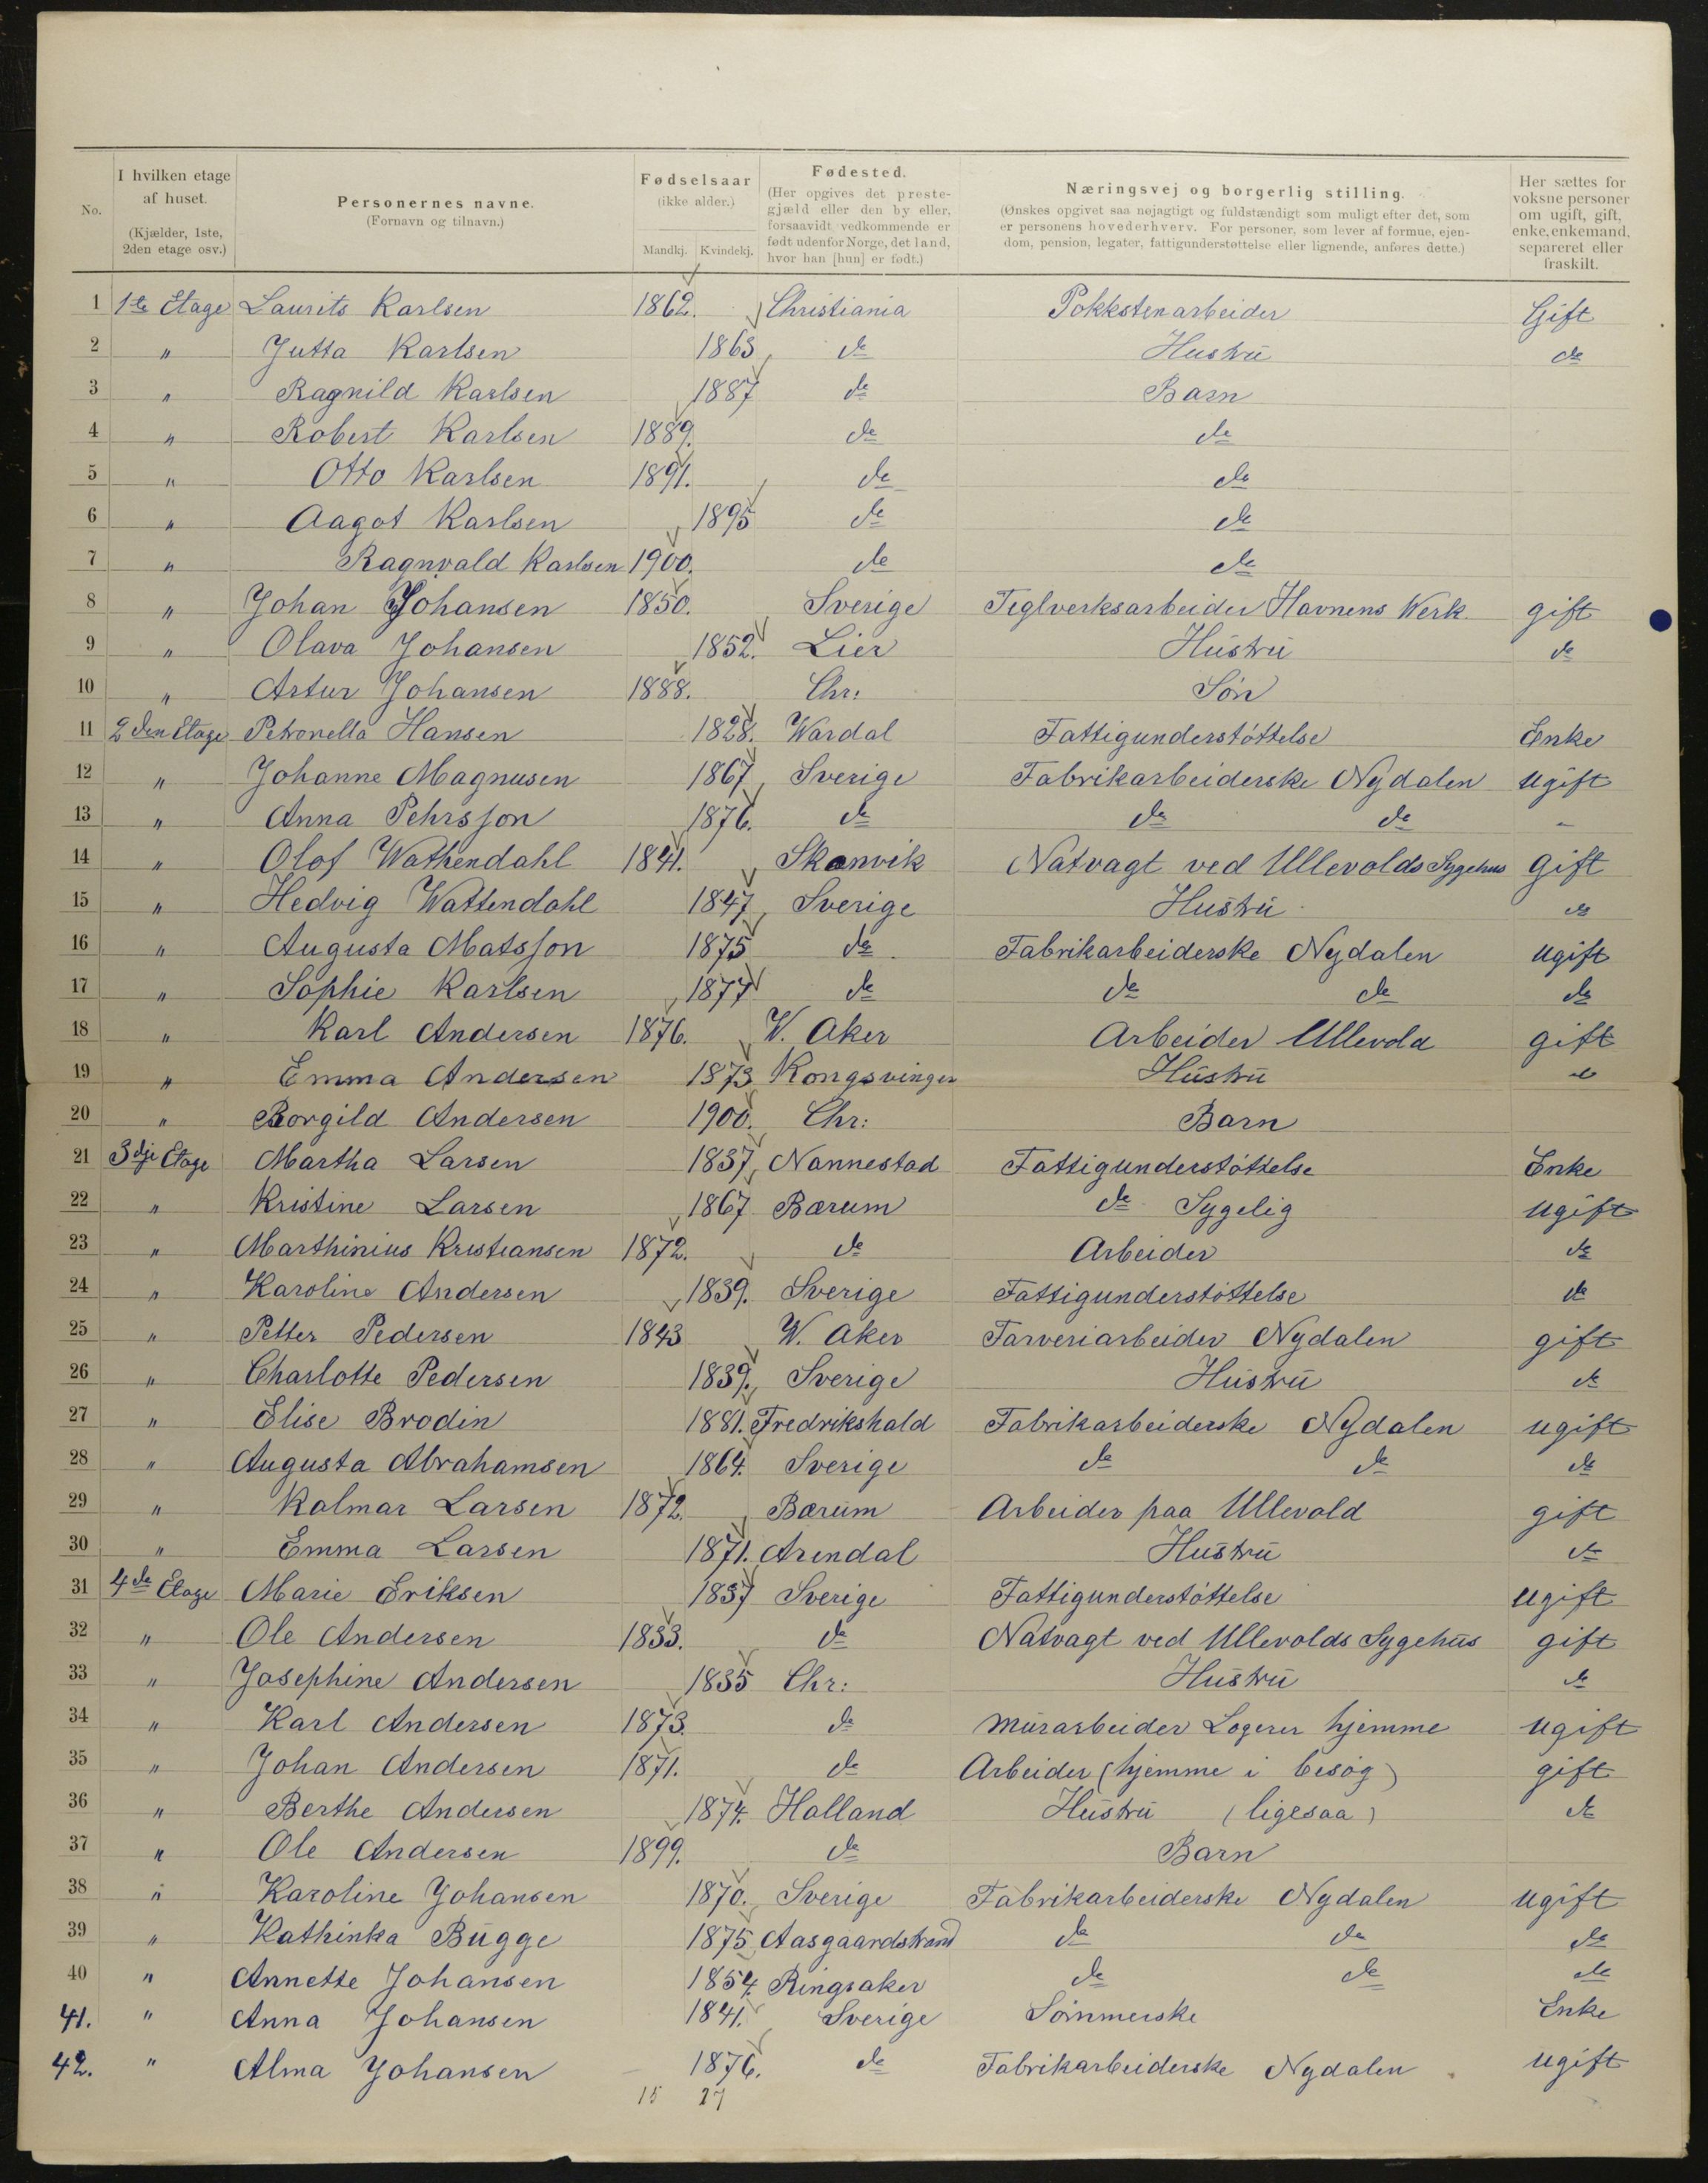 No.
I hvilken etage af huset.
(Kjælder, 1ste, 2den etage osv.)
Personernes navne.
(Fornavn og tilnavn.)
Fødselsaar
(ikke alder.)
Mandkj. Kvindekj.
Fødested.
(Her opgives det prestegjæld eller den by eller, forsaavidt vedkommende er født udenfor Norge, det land, hvor han [hun] er født.)
Næringsvej og borgerlig stilling.
(Ønskes opgivet saa nøjagtigt og fuldstændigt som muligt efter det, som er personens hovederhverv. For personer, som lever af formue, ejendom, pension, legater, fattigunderstøttelse eller lignende, anføres dette.)
Her sættes for voksne personer om ugift, gift, enke, enkemand, separeret eller fraskilt.
1 1ste Etage Laurits Karlsen 1862. Christiania Pokkstenarbeider Gift
2 " Jutta Karlsen 1863 do Hustru do
3 " Ragnild Karlsen 1887 do Barn
4 " Robert Karlsen 1889. do do
5 " Otto Karlsen 1891. do do
6 " Aagot Karlsen 1895 do do
7 " Ragnvald Karlsen 1900. do do
8 " Johan Johansen 1850. Sverige Teglverksarbeider Havnens Werk gift
9 " Olava Johansen 1852. Lier Hustru do
10 " Artur Johansen 1888. Chr: Søn
11 2den Etage Petronella Hansen 1828. Wardal Fattigunderstøttelse Enke
12 " Johanne Magnusen 1867 Sverige Fabrikarbeiderske Nydalen ugift
13 " Anna Pehrsson 1876. do do do -
14 " Olof Wathendahl 1841. Skanvik Natvagt ved Ullevolds Sygehus gift
15 " Hedvig Wattendahl 1847 Sverige Hustru do
16 " Augusta Matsson 1875 do Fabrikarbeiderske Nydalen ugift
17 " Sophie Karlsen 1877 do do do do
18 " Karl Andersen 1876. W. Aker Arbeider Ullevola gift
19 " Emma Andersen 1873 Kongsvinger Hustru do
20 " Borgild Andersen 1900. Chr: Barn
21 3dje Etage Martha Larsen 1837 Nannestad Fattigunderstøttelse Enke
22 " Kristine Larsen 1867 Bærum do Sygelig ugift
23 " Marthinius Kristiansen 1872. do Arbeider do
24 " Karoline Andersen 1839. Sverige Fattigunderstøttelse do
25 " Petter Pedersen 1843 W. Aker Farveriarbeider Nydalen gift
26 " Charlotte Pedersen 1839. Sverige Hustru do
27 " Elise Brodin 1881. Fredrikshald Fabrikarbeiderske Nydalen ugift
28 " Augusta Abrahamsen 1864. Sverige do do do
29 " Kalmar Larsen 1872. Bærum Arbeider paa Ullevold gift
30 " Emma Larsen 1871. Arendal Hustru do
31 4de Etage Marie Eriksen 1837 Sverige Fattigunderstøttelse ugift
32 " Ole Andersen 1833. do Natvagt ved Ullevolds Sygehus gift
33 " Josephine Andersen 1835 Chr: Hustru do
34 " Karl Andersen 1873. do Murarbeider Logerer hjemme ugift
35 " Johan Andersen 1871. do Arbeider (hjemme i besøg) gift
36 " Berthe Andersen 1874. Halland Hustru (ligesaa) do
37 " Ole Andersen 1899. do Barn
38 " Karoline Johansen 1870. Sverige Fabrikarbeiderske Nydalen ugift
39 " Kathinka Bugge 1875 Aasgaardstrand do do do
40 " Annette Johansen 1854. Ringsaker do do do
41. " Anna Johansen 1841. Sverige Sømmerske Enke
42. " Alma Johansen 1876. do Fabrikarbeiderske Nydalen ugift
15 27